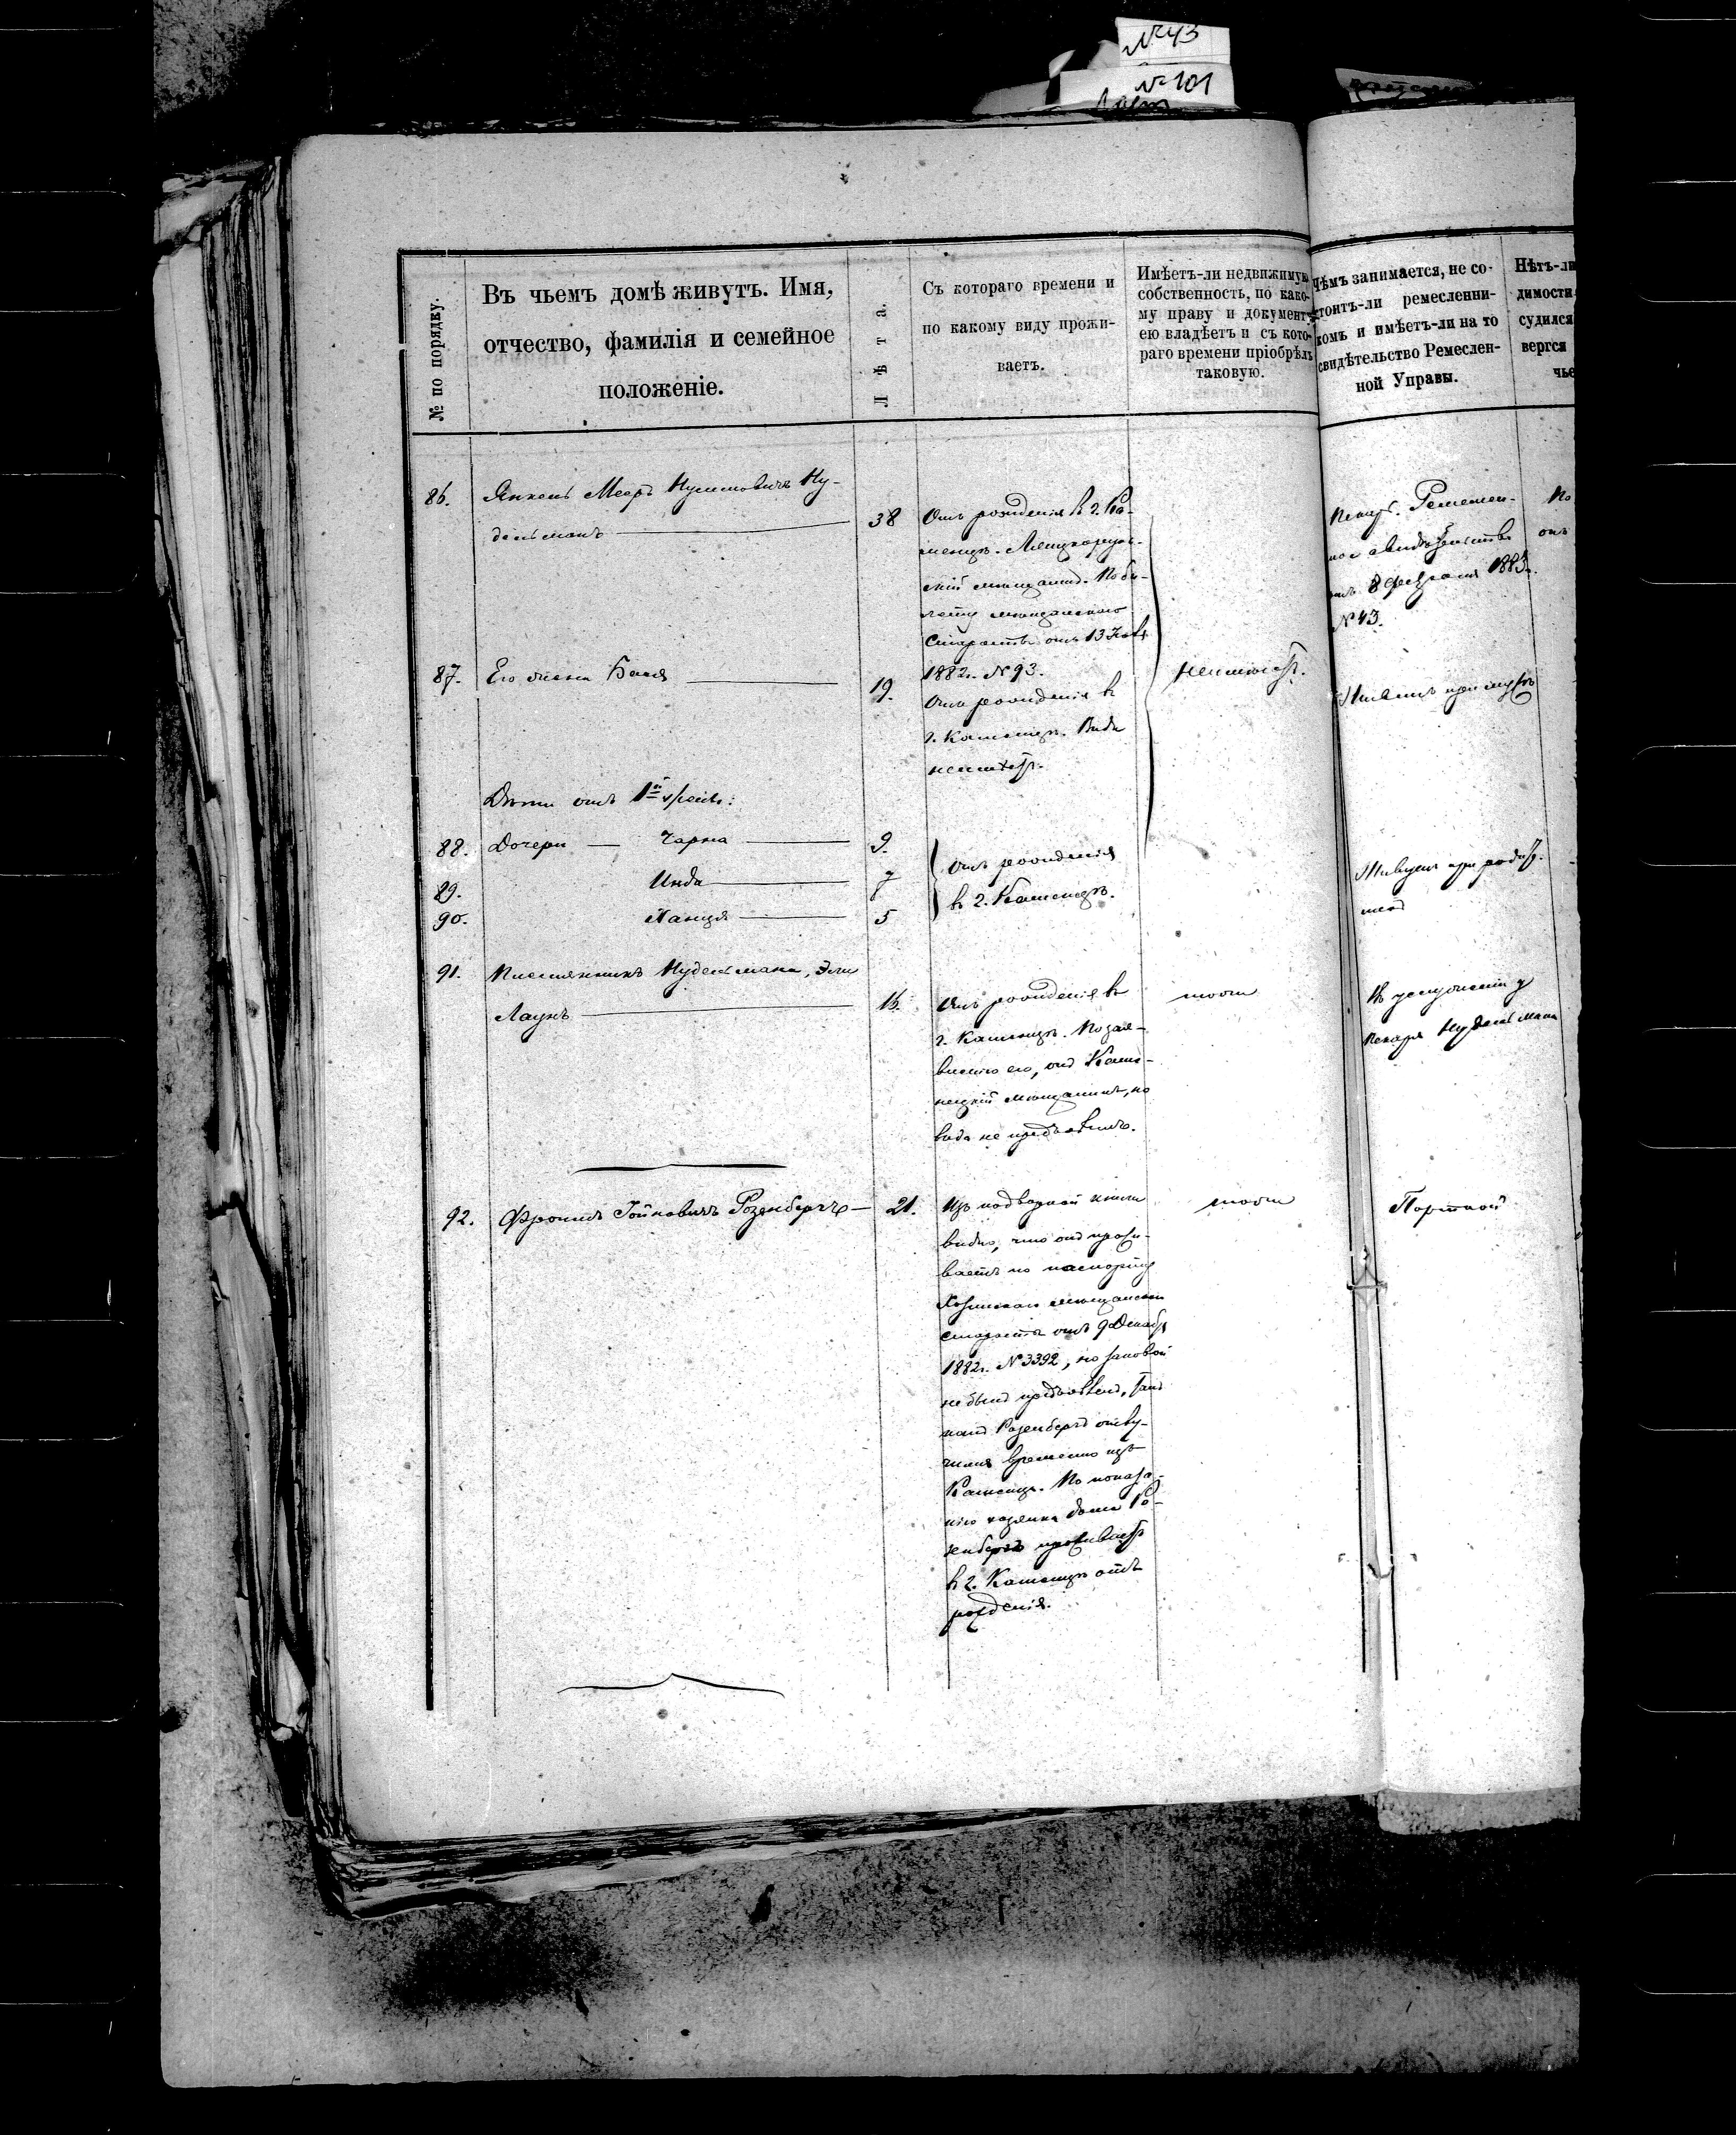 №43
№101
№ по порядку.
Въ чьемъ домѣ живутъ. Имя,
отчество, фамилія и семейное
положеніе.
Лѣта.
Съ котораго времени и
по какому виду прожи-
ваетъ.
Имѣетъ-ли недвижимую
собственность, по како-
му праву и документу
ею владѣетъ и съ кото-
раго времени пріобрѣлъ
таковую.
Чѣмъ занимается, не со-
стоитъ-ли ремесленни-
комъ и имѣетъ-ли на то
свидѣтельство Ремеслен-
ной Управы.
Нѣтъ-ли
димости
судился
вергся
чье
86.
Янкель Мееръ Нусимовичъ Ну-
дельманъ
38
Отъ рожденія в г. Ка-
менцѣ.
скій мѣщанинъ. По би-
лету мѣщанскаго
Старосты отъ 13
1882г. №93.
неимѣетъ.
Пекарь. Ремеслен-
ное свидѣтельство
отъ 8 февраля 1883г.
№43.
По
онъ
87.
Его жена Бася
19.
Отъ рожденія в
г. Каменцѣ. Вида
неимѣетъ.
Живетъ при мужѣ
Дѣти отъ 1й
88.
Дочери — Чарна
9.
89.
Инда
7
90.
Ханця
5
Отъ рожденія
в г. Каменцѣ.
Живутъ при родит.
91.
Племянникъ Нудельмана, Эли
Лаунъ
16.
Отъ рожденія в
г. Каменцѣ. По зая-
вленію его, онъ Каме-
нецкій мѣщанинъ, но
вида не предъявилъ.
тоже
В услуженіи у
пекаря Нудельмана
92.
Фроимъ Гойновичъ Розенбергъ —
21.
Изъ подворной книги
видно, что онъ прожи-
ваетъ по паспорту
мѣщанскаго
старосты отъ 9 Декабря
1882г. №3392, но таковой
не былъ предъявленъ, такъ
какъ Розенбергъ отлу-
чился временно изъ
Каменца. По показа-
нію хозяина дома Ро-
зенбергъ проживаетъ
в г. Каменцѣ отъ
рожденія.
тоже
Портной